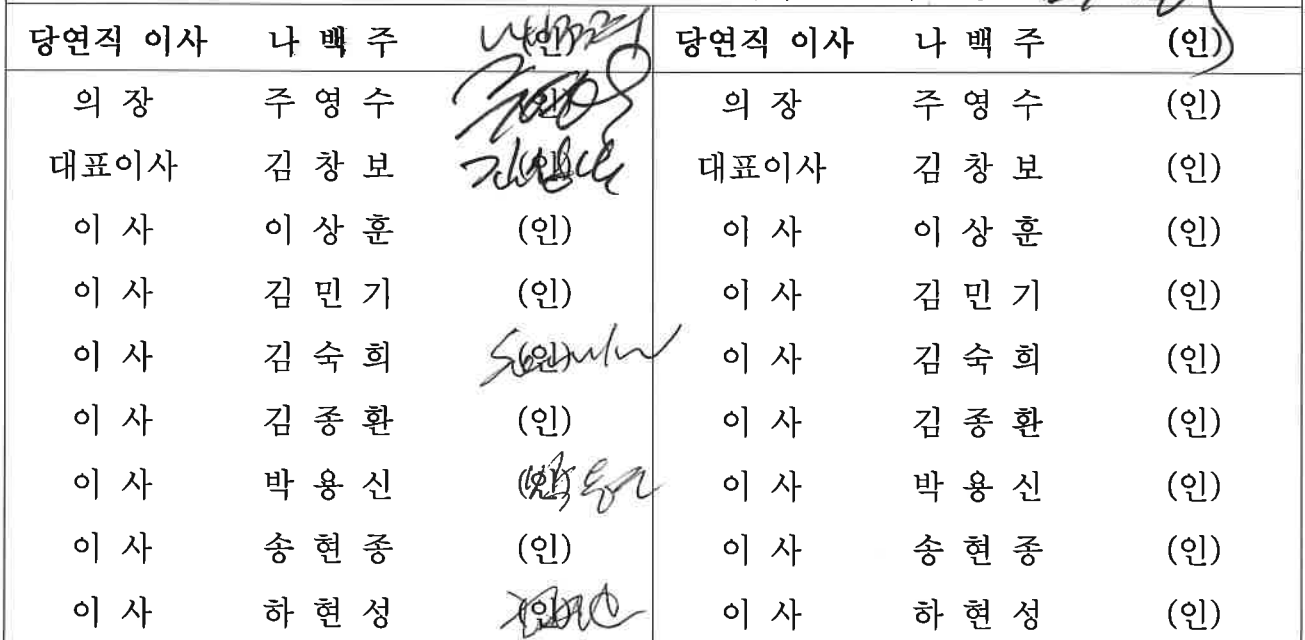 당연직 이사 나 백 주 (인) 당연직 이사 나 백 주 (인)
의 장 주 영 수 (인) 의 장 주 영 수 (인)
대표이사 김 창 보 (인) 대표이사 김 창 보 (인)
이 사 이 상 훈 (인) 이 사 이 상 훈 (인)
이 사 김 민 기 (인) 이 사 김 민 기 (인)
이 사 김 숙 희 (인) 이 사 김 숙 희 (인)
이 사 김 종 환 (인) 이 사 김 종 환 (인)
이 사 박 용 신 (인) 이 사 박 용 신 (인)
이 사 송 현 종 (인) 이 사 송 현 종 (인)
이 사 하 현 성 (인) 이 사 하 현 성 (인)